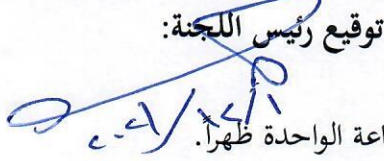 توقيع رئيس اللجنة:
اعة الواحدة ظهراً.